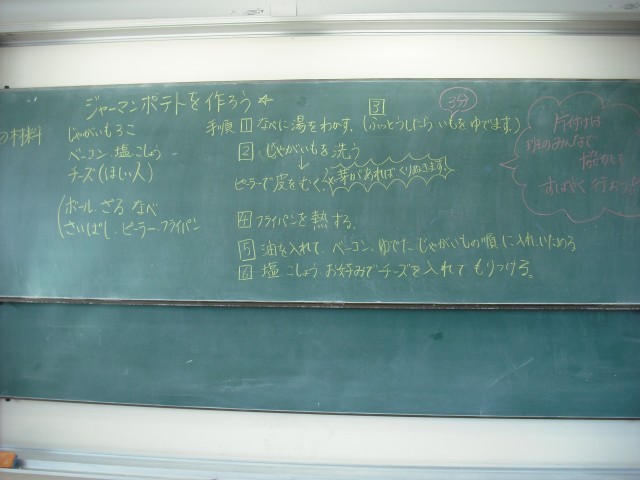 ジャーマンポテトを作ろう☆
材料
じゃがいも2こ
ベーコン、塩、こしょう
チーズ(ほしい人)
(ボール、ざる なべ
さいばし、ピーラー、フライパン
手順 1 なべに湯をわかす。
3 (ふっとうしたら いもを ゆでます。)
3分
2 じゃがいもを洗う
↓
ピーラーで皮をむく。
芽があれば くりぬきます。
4 フライパンを熱する。
5 油を入れて、ベーコン、ゆでた、じゃがいもの順に入れ、いためる
6 塩 こしょう お好みでチーズを入れて もりつける。
片付けは
班のみんなで
協力して
すばやく 行おう